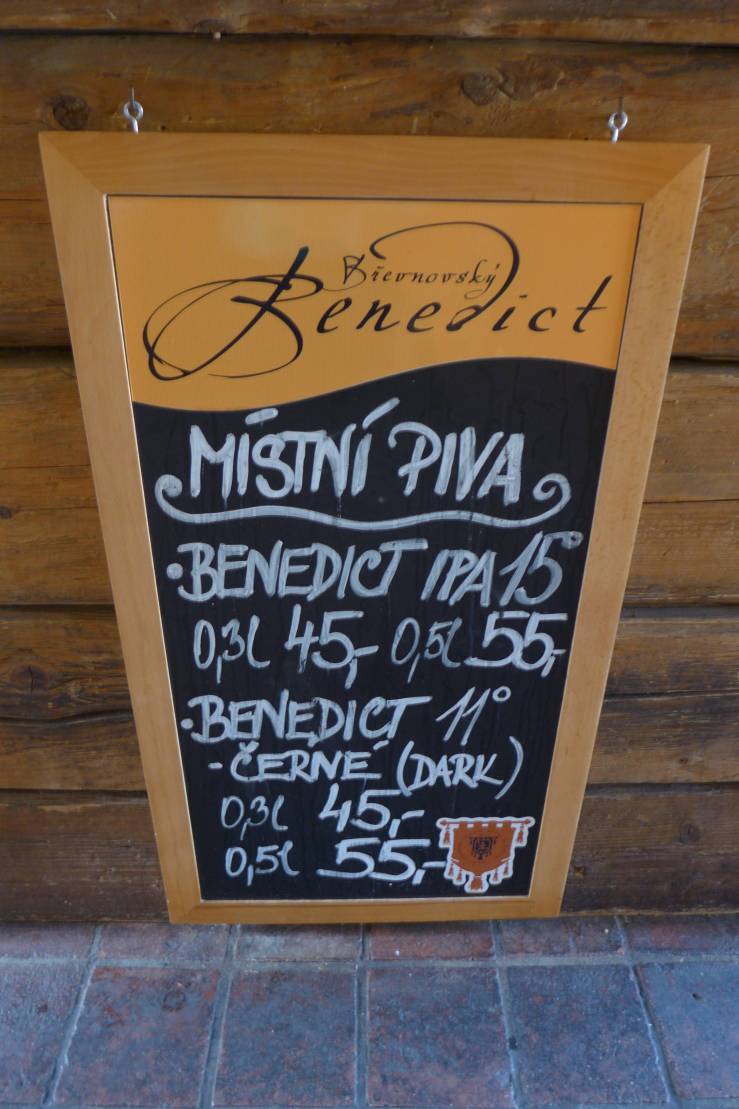 Břevnovský
Benedict
MÍSTNÍ PIVA
•BENEDICT IPA 15°
0,3l 45,- 0,5l 55,-
•BENEDICT 11°
- ČERNÉ (DARK)
0,3l 45,-
0,5l 55,-